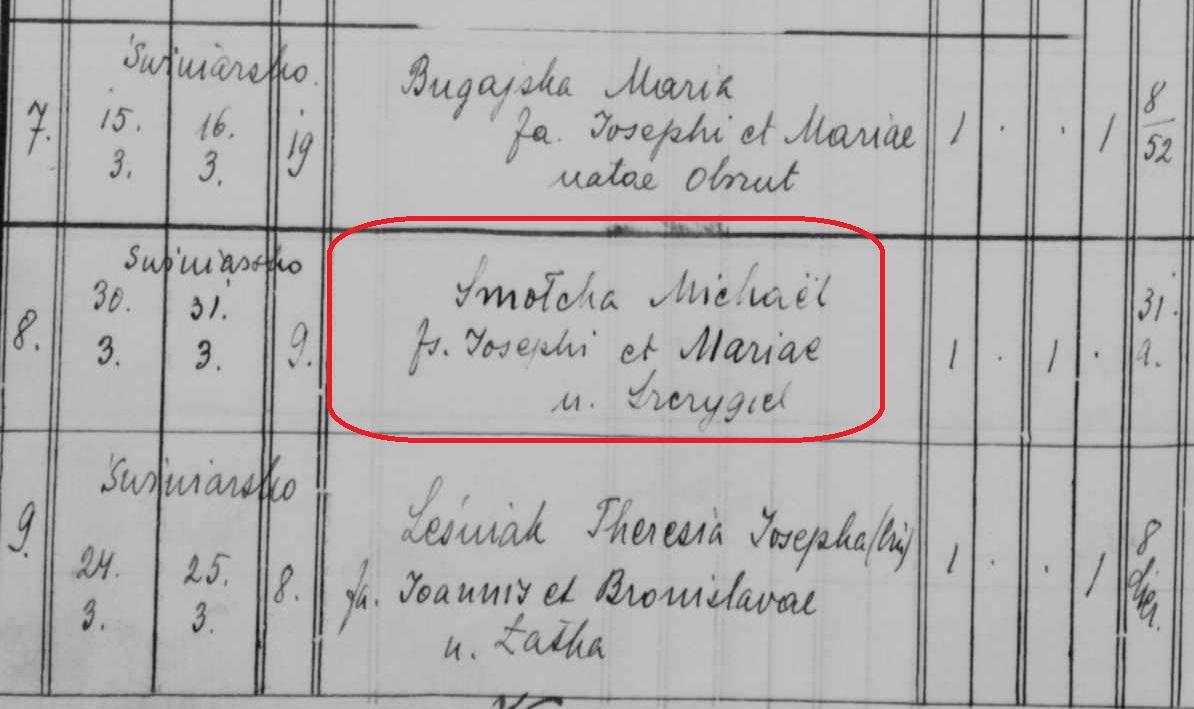 7.
Świniarsko.
15. 16.
3. 3.
19
Bugajska Maria
fa. Josephi et Mariae
natae Obrzut
1 . . 1
8/52
8.
Świniarsko
30. 31.
3. 3.
9.
Smotcha Michaël
fs. Josephi et Mariae
n. Szczygieł
1 . 1 .
31.
a.
9.
Świniarsko
24. 25.
3. 3.
8.
Leśniak Theresia Josepha
fa. Joannis et Bronislavae
n. Łatka
1 . . 1
8
dier.